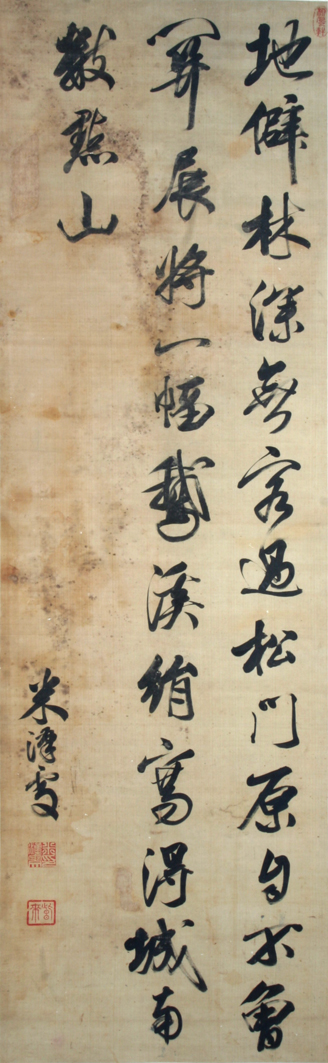 地僻林深無客過松門原自不曾
關展將一幅鵝溪絹寫得城南
數點山
米漢雯